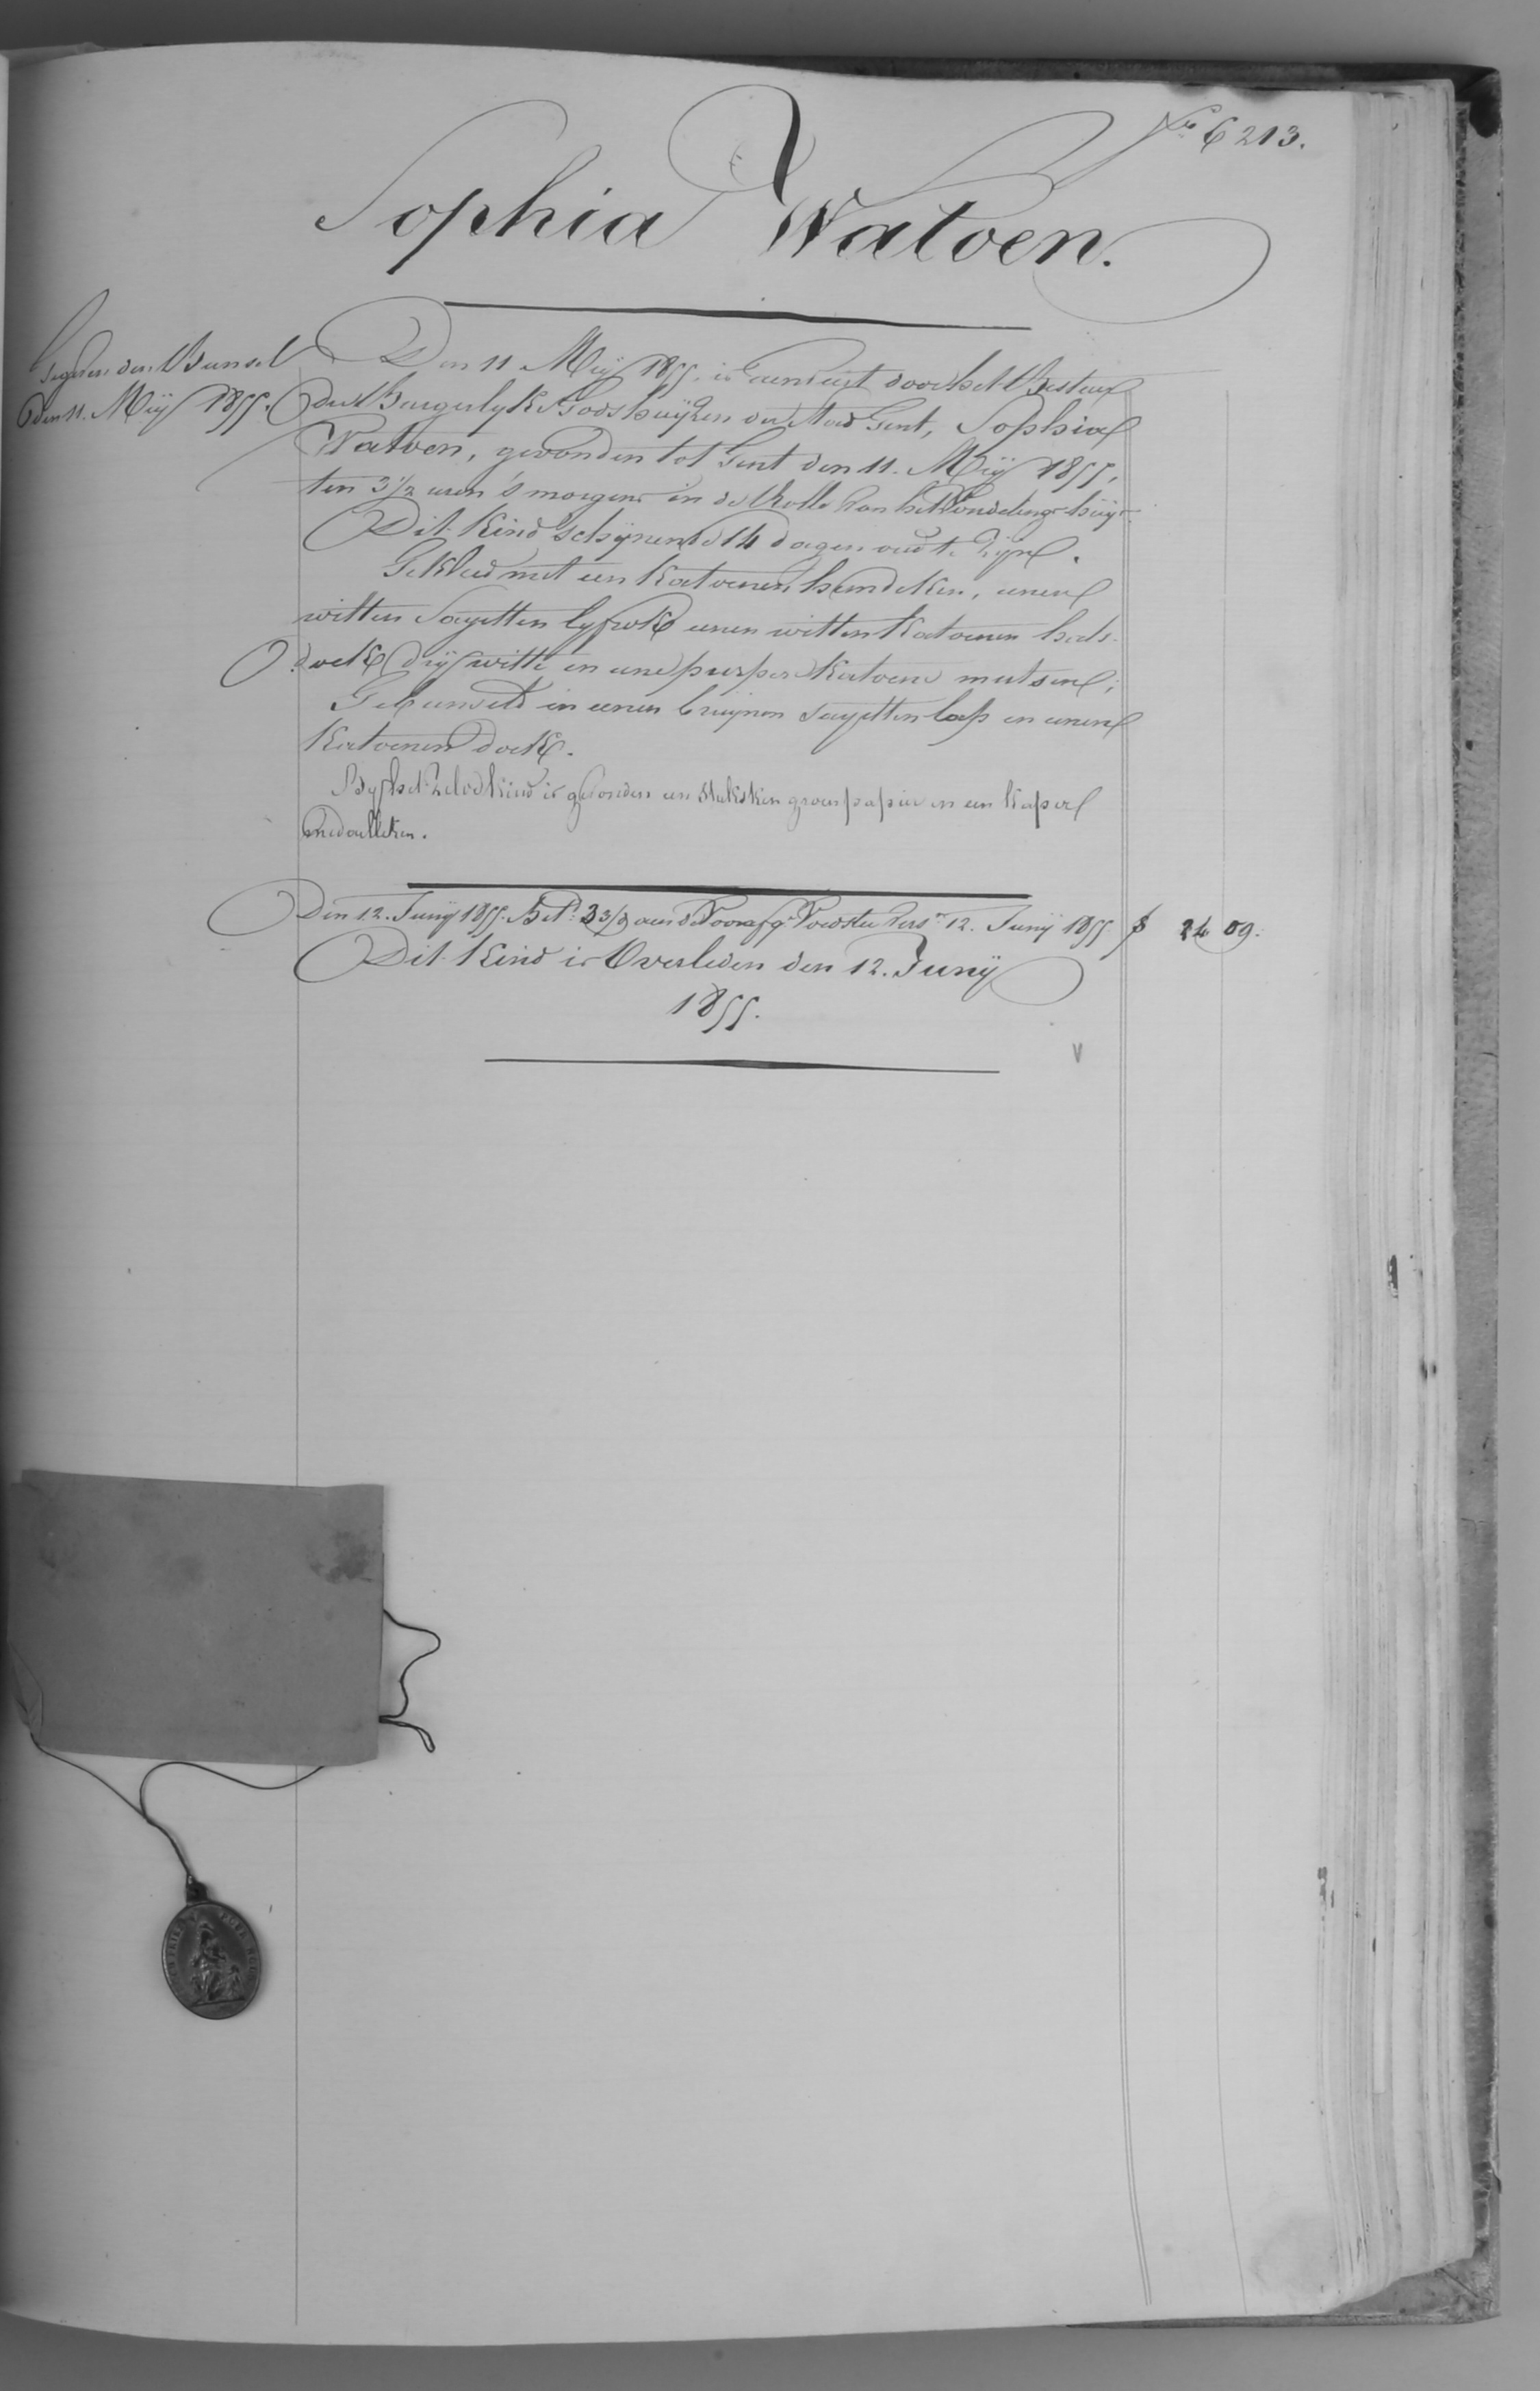 N.º 6213.
Sophia Watoen.
Gegeven den Bunsel
den 11. Meÿ 1855.
Den 11 Meÿ 1855. is aenveert door het Bestuer
der Burgerlyke Godshuÿzen der stad Gent, Sophia
Watoen, gevonden tot Gent den 11. Meÿ 1855,
ten 3 1/2 uren 's morgens in de Rolle van het Vondelings-huÿs.
Dit Kind schÿnende 14 dagen oud te zÿn.
Gekleed met een katoenen hemdeken, eenen
witten sayetten lyfrok eenen witten katoenen hals-
doek dry witte en eene purper katoene mutsen;
Gebunseld in eenen bruÿnen sayetten lap en eenen
katoenen doek.
By het zelve kind is gevonden een stuksken groen papier en een koper
medaelleken.
Den 12. Junÿ 1855. Bet.d 33/d aen de Voorsg. Voedster vers.n 12. Junÿ 1855 f 24 09.
Dit Kind is Overleden den 12. Junÿ
1855.
V